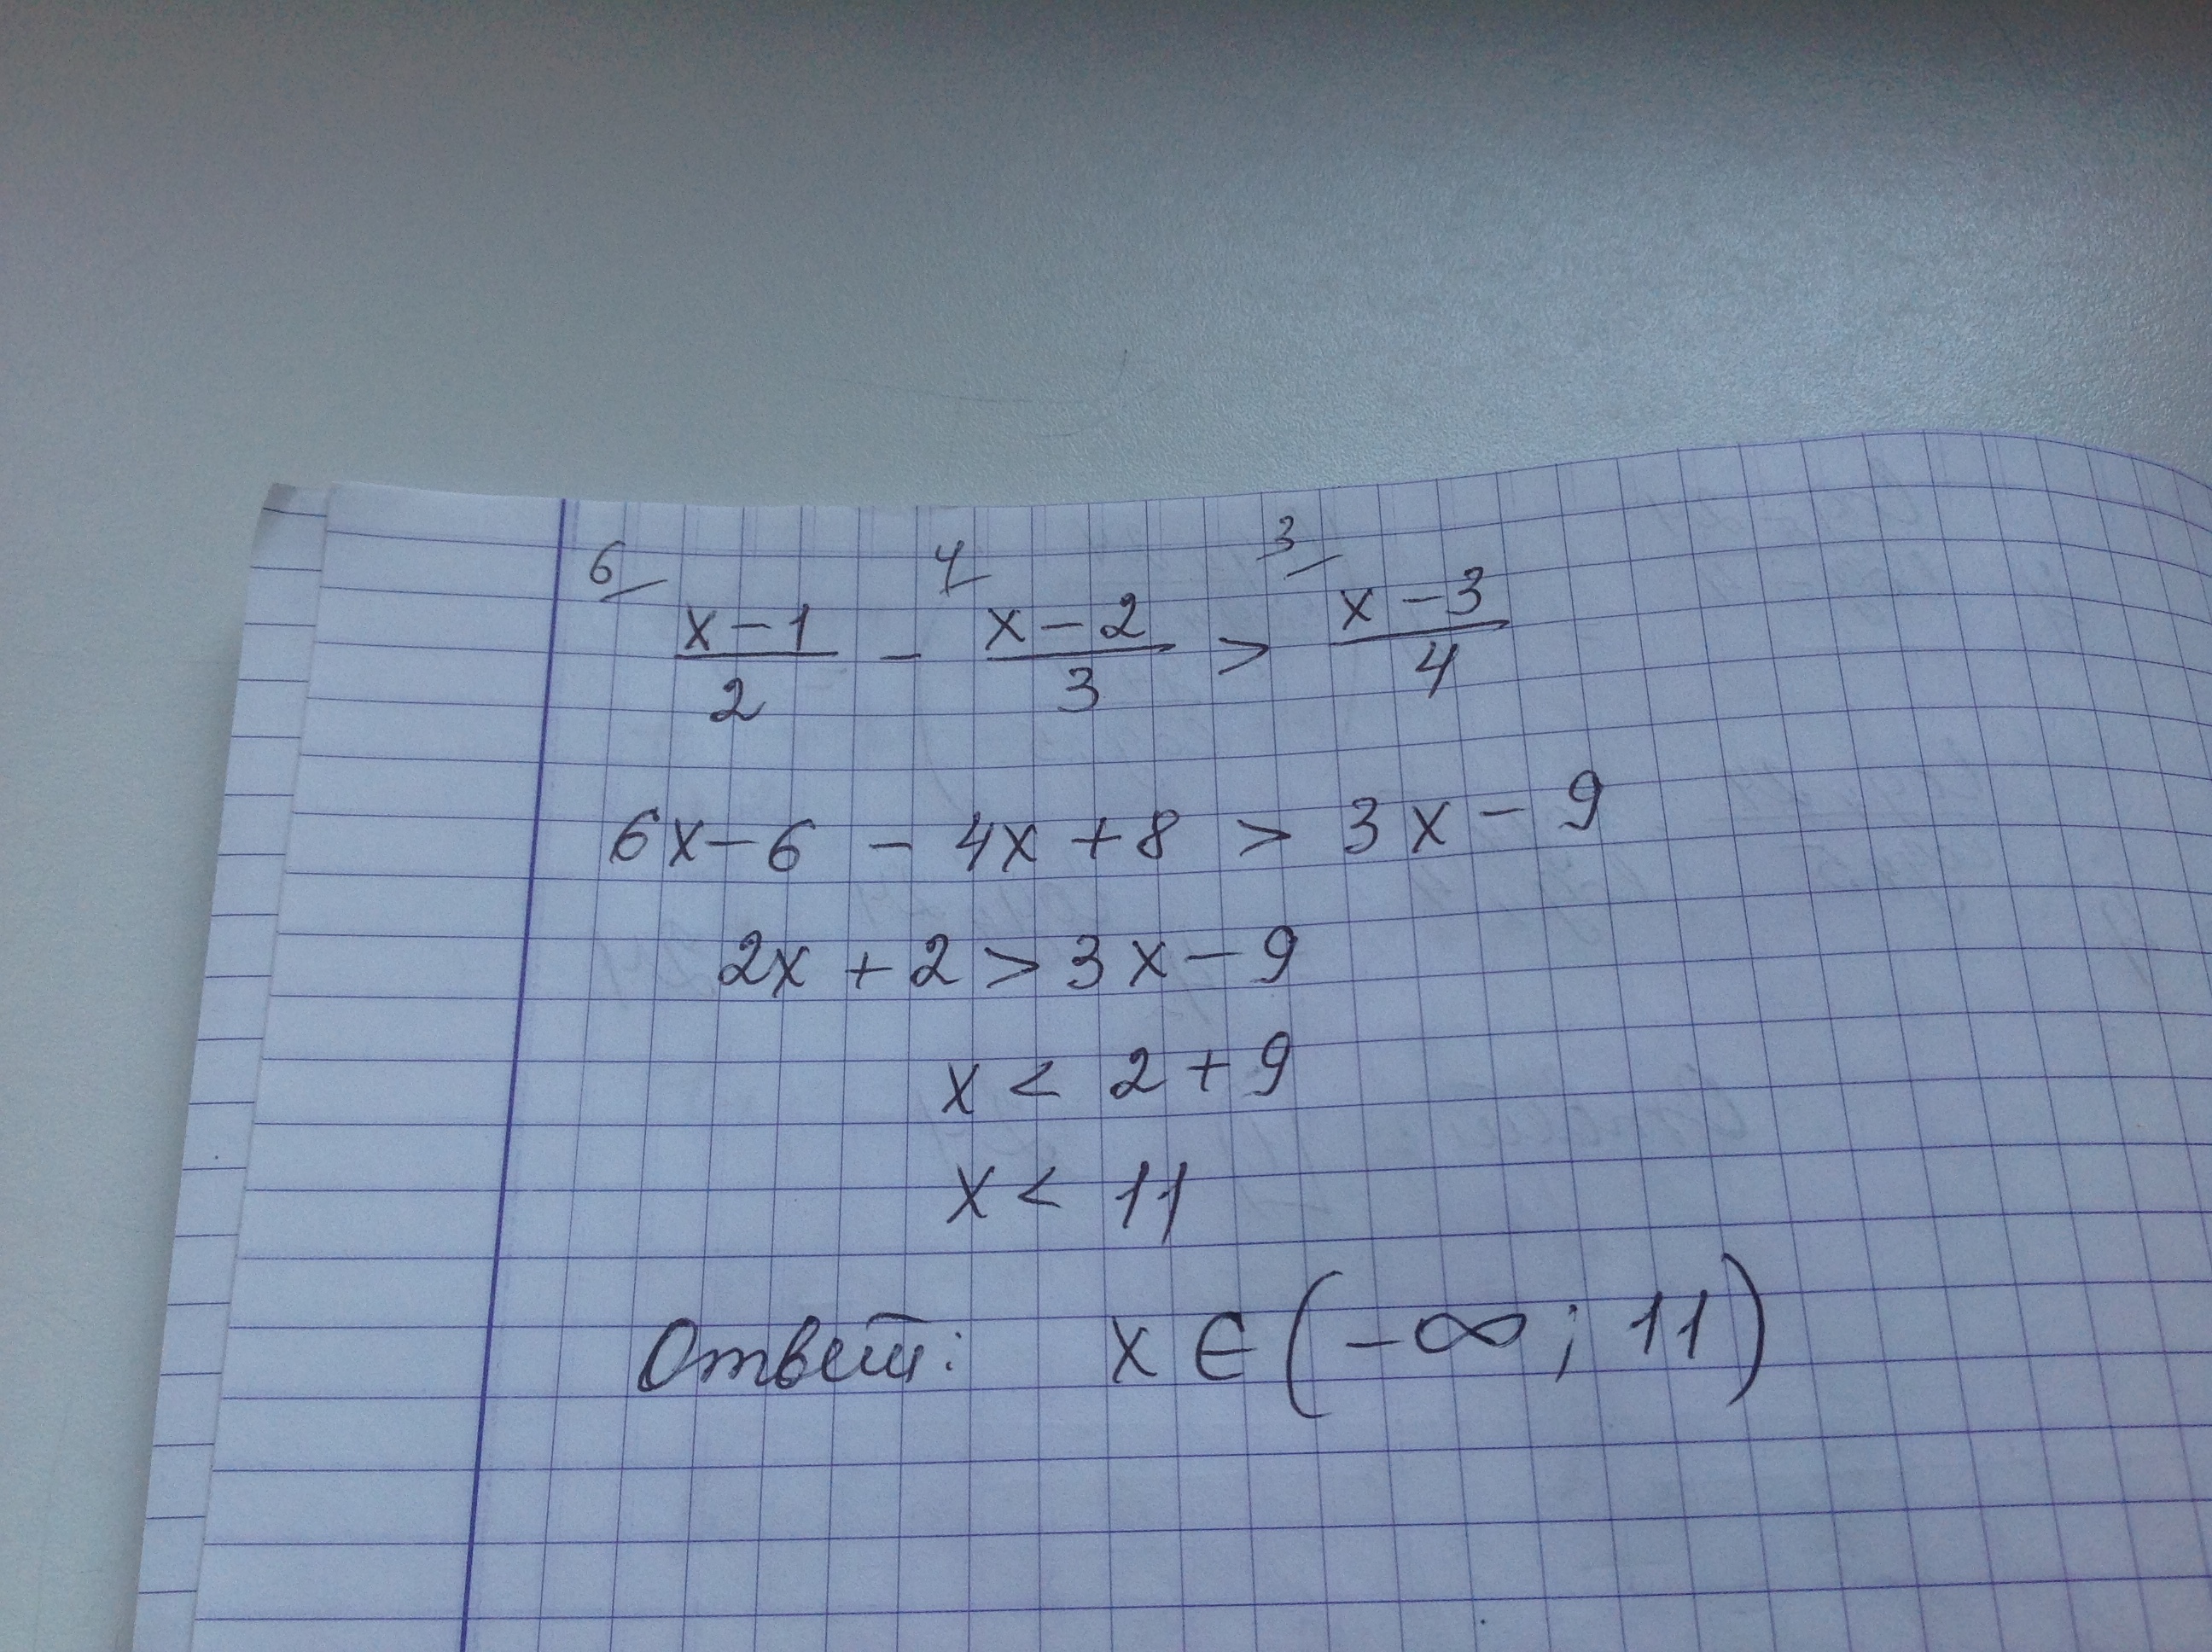 6 4 3
x-1/2 - x-2/3 > x-3/4
6x-6 - 4x+8 > 3x-9
2x+2>3x-9
x < 2+9
x < 11
Ответ: x∈(-∞; 11)